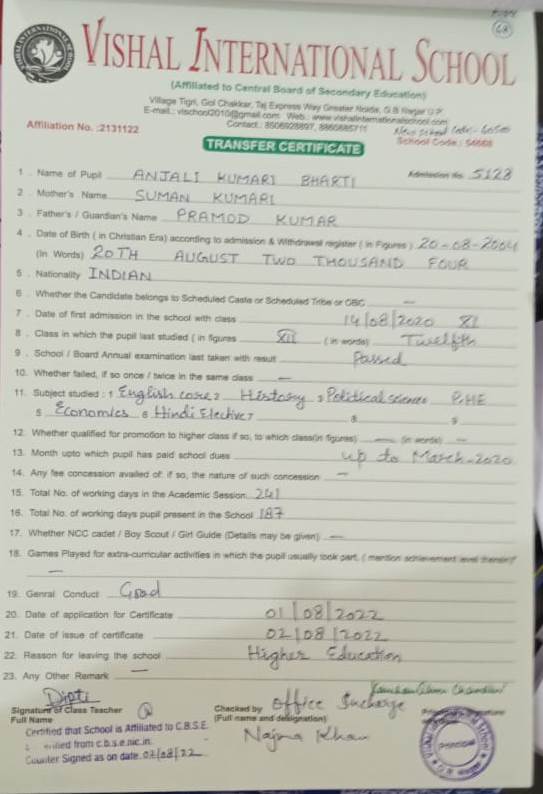 68
VISHAL INTERNATIONAL SCHOOL
(Affiliated to Central Board of Secondary Education)
Village Tigri, Gol Chakkar, Taj Express Way Greater Noida, G.B Nagar U.P
E-mail.: vischool2010@gmail.com Web.: www.vishalinternationalschool.com
Contact.: 8506928897, 8860885711
Affiliation No. :2131122
New School Code:-
School Code.:
TRANSFER CERTIFICATE
1 . Name of Pupil ANJALI KUMARI BHARTI Admission No. 5128
2 . Mother's Name SUMAN KUMARI
3 . Father's / Guardian's Name PRAMOD KUMAR
4 . Date of Birth ( in Christian Era) according to admission & Withdrawal register ( in Figures ) 20-08-2004
(In Words) 20TH AUGUST TWO THOUSAND FOUR
5 . Nationality INDIAN
6 . Whether the Candidate belongs to Scheduled Caste or Scheduled Tribe or OBC —
7 . Date of first admission in the school with class 14/08/2020 XI
8 . Class in which the pupil last studied ( in figures XII ( in words) Twelfth
9 . School / Board Annual examination last taken with result Passed
10. Whether failed, if so once / twice in the same class —
11. Subject studied : 1 English core 2 History 3 Political science P.HE
5 Economics 6 Hindi Elective 7 8 9
12. Whether qualified for promotion to higher class if so, to which class(in figures) — (in words) —
13. Month upto which pupil has paid school dues up to March-2020
14. Any fee concession availed of: if so, the nature of such concession —
15. Total No. of working days in the Academic Session 241
16. Total No. of working days pupil present in the School 187
17. Whether NCC cadet / Boy Scout / Girl Guide (Details may be given) —
18. Games Played for extra-curricular activities in which the pupil usually took part. ( mention achievement level therein)
—
19. Genral Conduct Good
20. Date of application for Certificate 01/08/2022
21. Date of issue of certificate 02/08/2022
22. Reason for leaving the school Higher Education
23. Any Other Remark —
Dipti
Signature of Class Teacher
Full Name
Checked by office Incharge
(Full name and designation)
Najma Khan
Certified that School is Affiliated to C.B.S.E.
from c.b.s.e.nic.in.
Counter Signed as on date 02/08/22
Principal